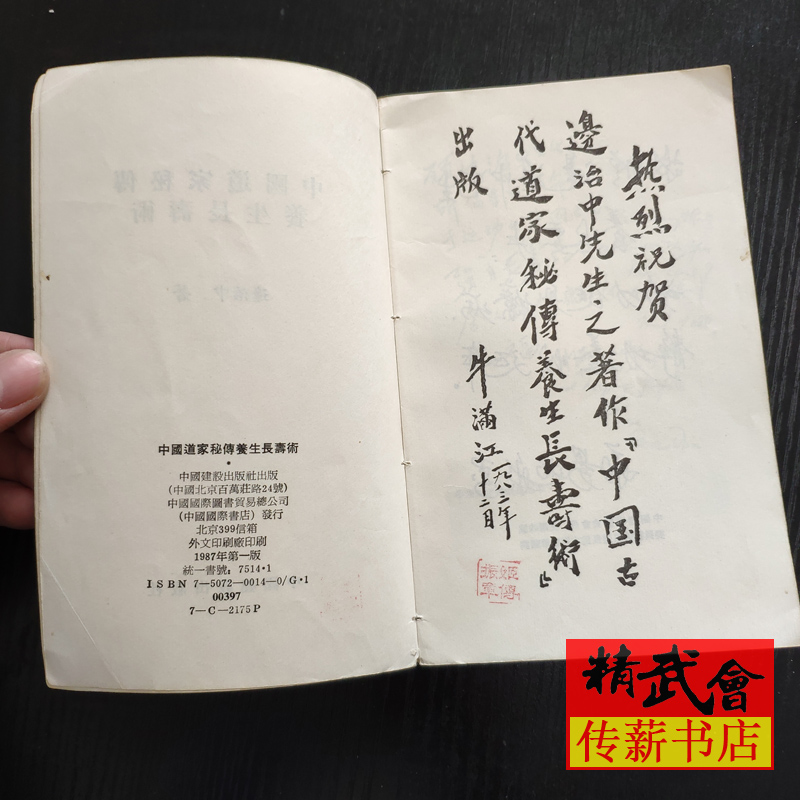 中國道家秘傳養生長壽術
•
中國建設出版社出版
(中國北京百萬莊路24號)
中國國際圖書貿易總公司
(中國國際書店)發行
北京399信箱
外文印刷廠印刷
1987年第一版
統一書號:7514·1
ISBN 7-5072-0014-0/G·1
00397
7-C-2175P
热烈祝贺
邊治中先生之著作『中国古
代道家秘傳養生長壽術』
出版
牛滿江一九八三年
十二月
精武會
传薪书店